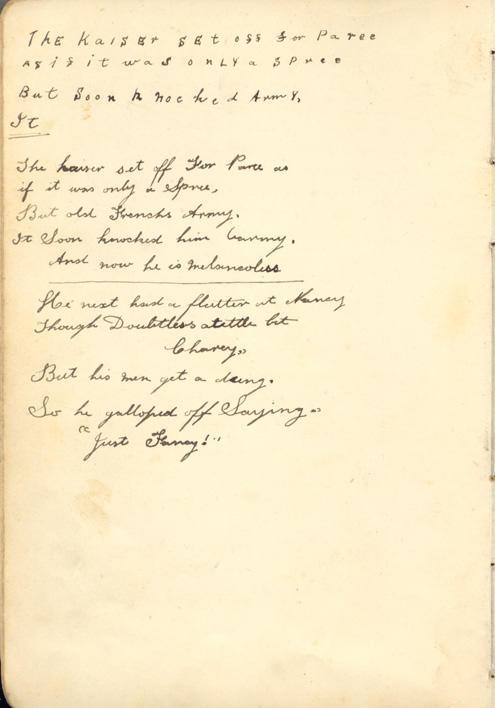 The Kaiser set off for Paree
as if it was only a Spree
But Soon Knocked Army,
It
The kaiser set off For Paree as
if it was only a Spree,
But old Frenchs Army.
It Soon knocked him barmy.
And now he is melancolees
He next had a flutter at Nancy
Though Doubtless a little bit
Chancy,,
But his men get a
So he galloped off Saying,,
"Just Fancy!"